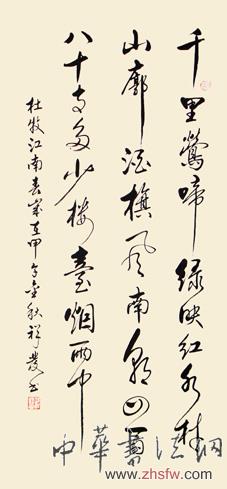 千里鶯啼绿映红水村
山廓酒旗风南朝四百
八十寺多少楼臺烟雨中
杜牧江南春歲在甲金秋祥發书
中華書法網
www.zhsfw.com